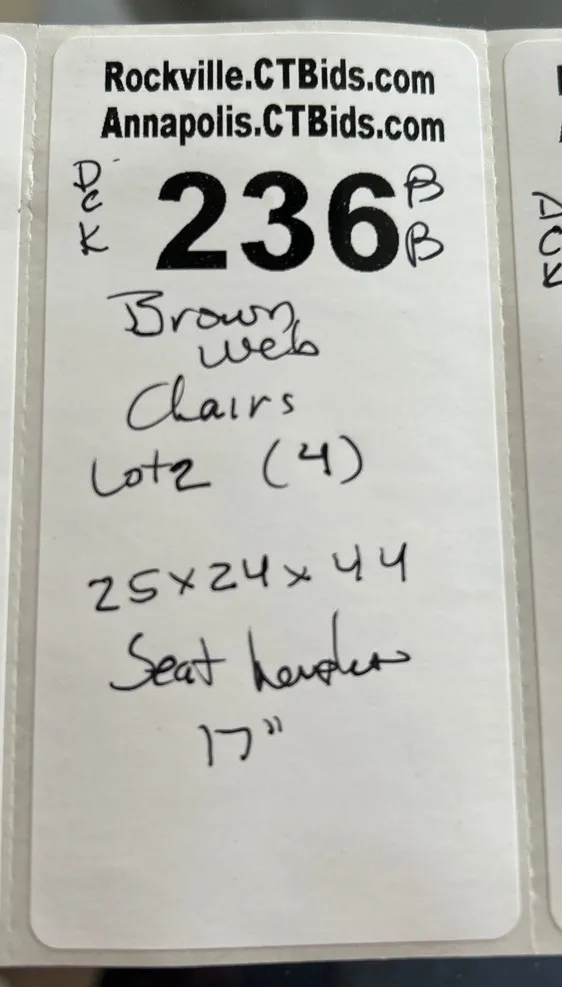 Rockville.CTBids.com
Annapolis.CTBids.com
DCK
236
BB
Brown
web
Chairs
Lot2 (4)
25x24x44
Seat
17"
DCK